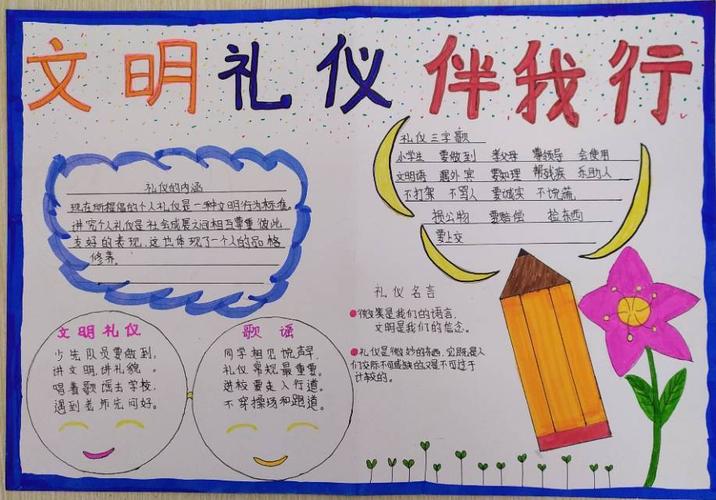 文明礼仪伴我行
礼仪的内涵
现在所提倡的个人礼仪是一种文明行为标准。
讲究个人礼仪是社会成展之间相互尊重彼此
友好的表现,这也体现了一个人的品格
修养。
礼仪三字歌
小学生 要做到 孝父母 要领导 会使用
文明语 遇外宾 要知理 帮残疾 乐助人
不打架 不骂人 要诚实 不说谎
损公物 要赔偿 捡东西
要上交
文明礼仪
少生队员要做到,
讲文明,讲礼貌。
唱着歌儒去学校,
遇到老师先问好。
歌谣
同学相见说声早,
礼仪常规最重要。
进校要走人行道。
不穿操场和跑道。
礼仪名言
微笑是我们的语言,
文明是我们的信念。
礼仪是微妙的东西,它既是人
们交际不可或缺的又是不可过于
计较的。